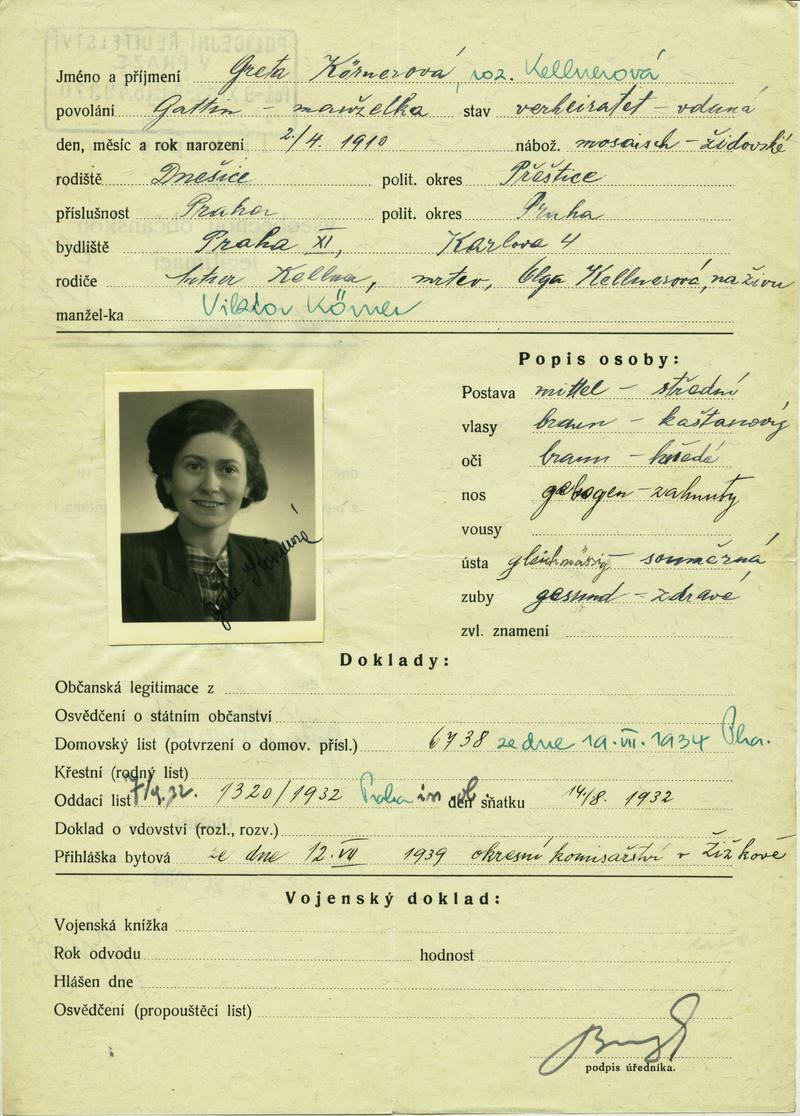 Jméno a příjmení Greta Körnerová, roz. Kellnerová
povolání Gattin – manželka stav verheiratet – vdaná
den, měsíc a rok narození 2/4. 1910 nábož. mosaisch – židovské
rodiště Dnešice polit. okres Přeštice
příslušnost Praha polit. okres Praha
bydliště Praha XI, Karlova 4
rodiče Kellner, mrtev, Olga Kellnerová, na živu
manžel-ka Viktor Körner
Popis osoby:
Postava mittel – střední
vlasy braun – kaštanový
oči braun – hnědé
nos gebogen – zahnutý
vousy
ústa gleichmässig – souměrná
zuby gesund – zdravé
zvl. znamení
Doklady:
Občanská legitimace z
Osvědčení o státním občanství
Domovský list (potvrzení o domov. přísl.) 6738 ze dne 19. VII. 1934 Pha.
Křestní (rodný list)
Oddací list 1320/1932 Praha den sňatku 14/8. 1932
Doklad o vdovství (rozl., rozv.)
Přihláška bytová ze dne 12. VII 1939 okresní komisařství v Žižkově
Vojenský doklad:
Vojenská knížka
Rok odvodu hodnost
Hlášen dne
Osvědčení (propouštěcí list)
podpis úředníka.